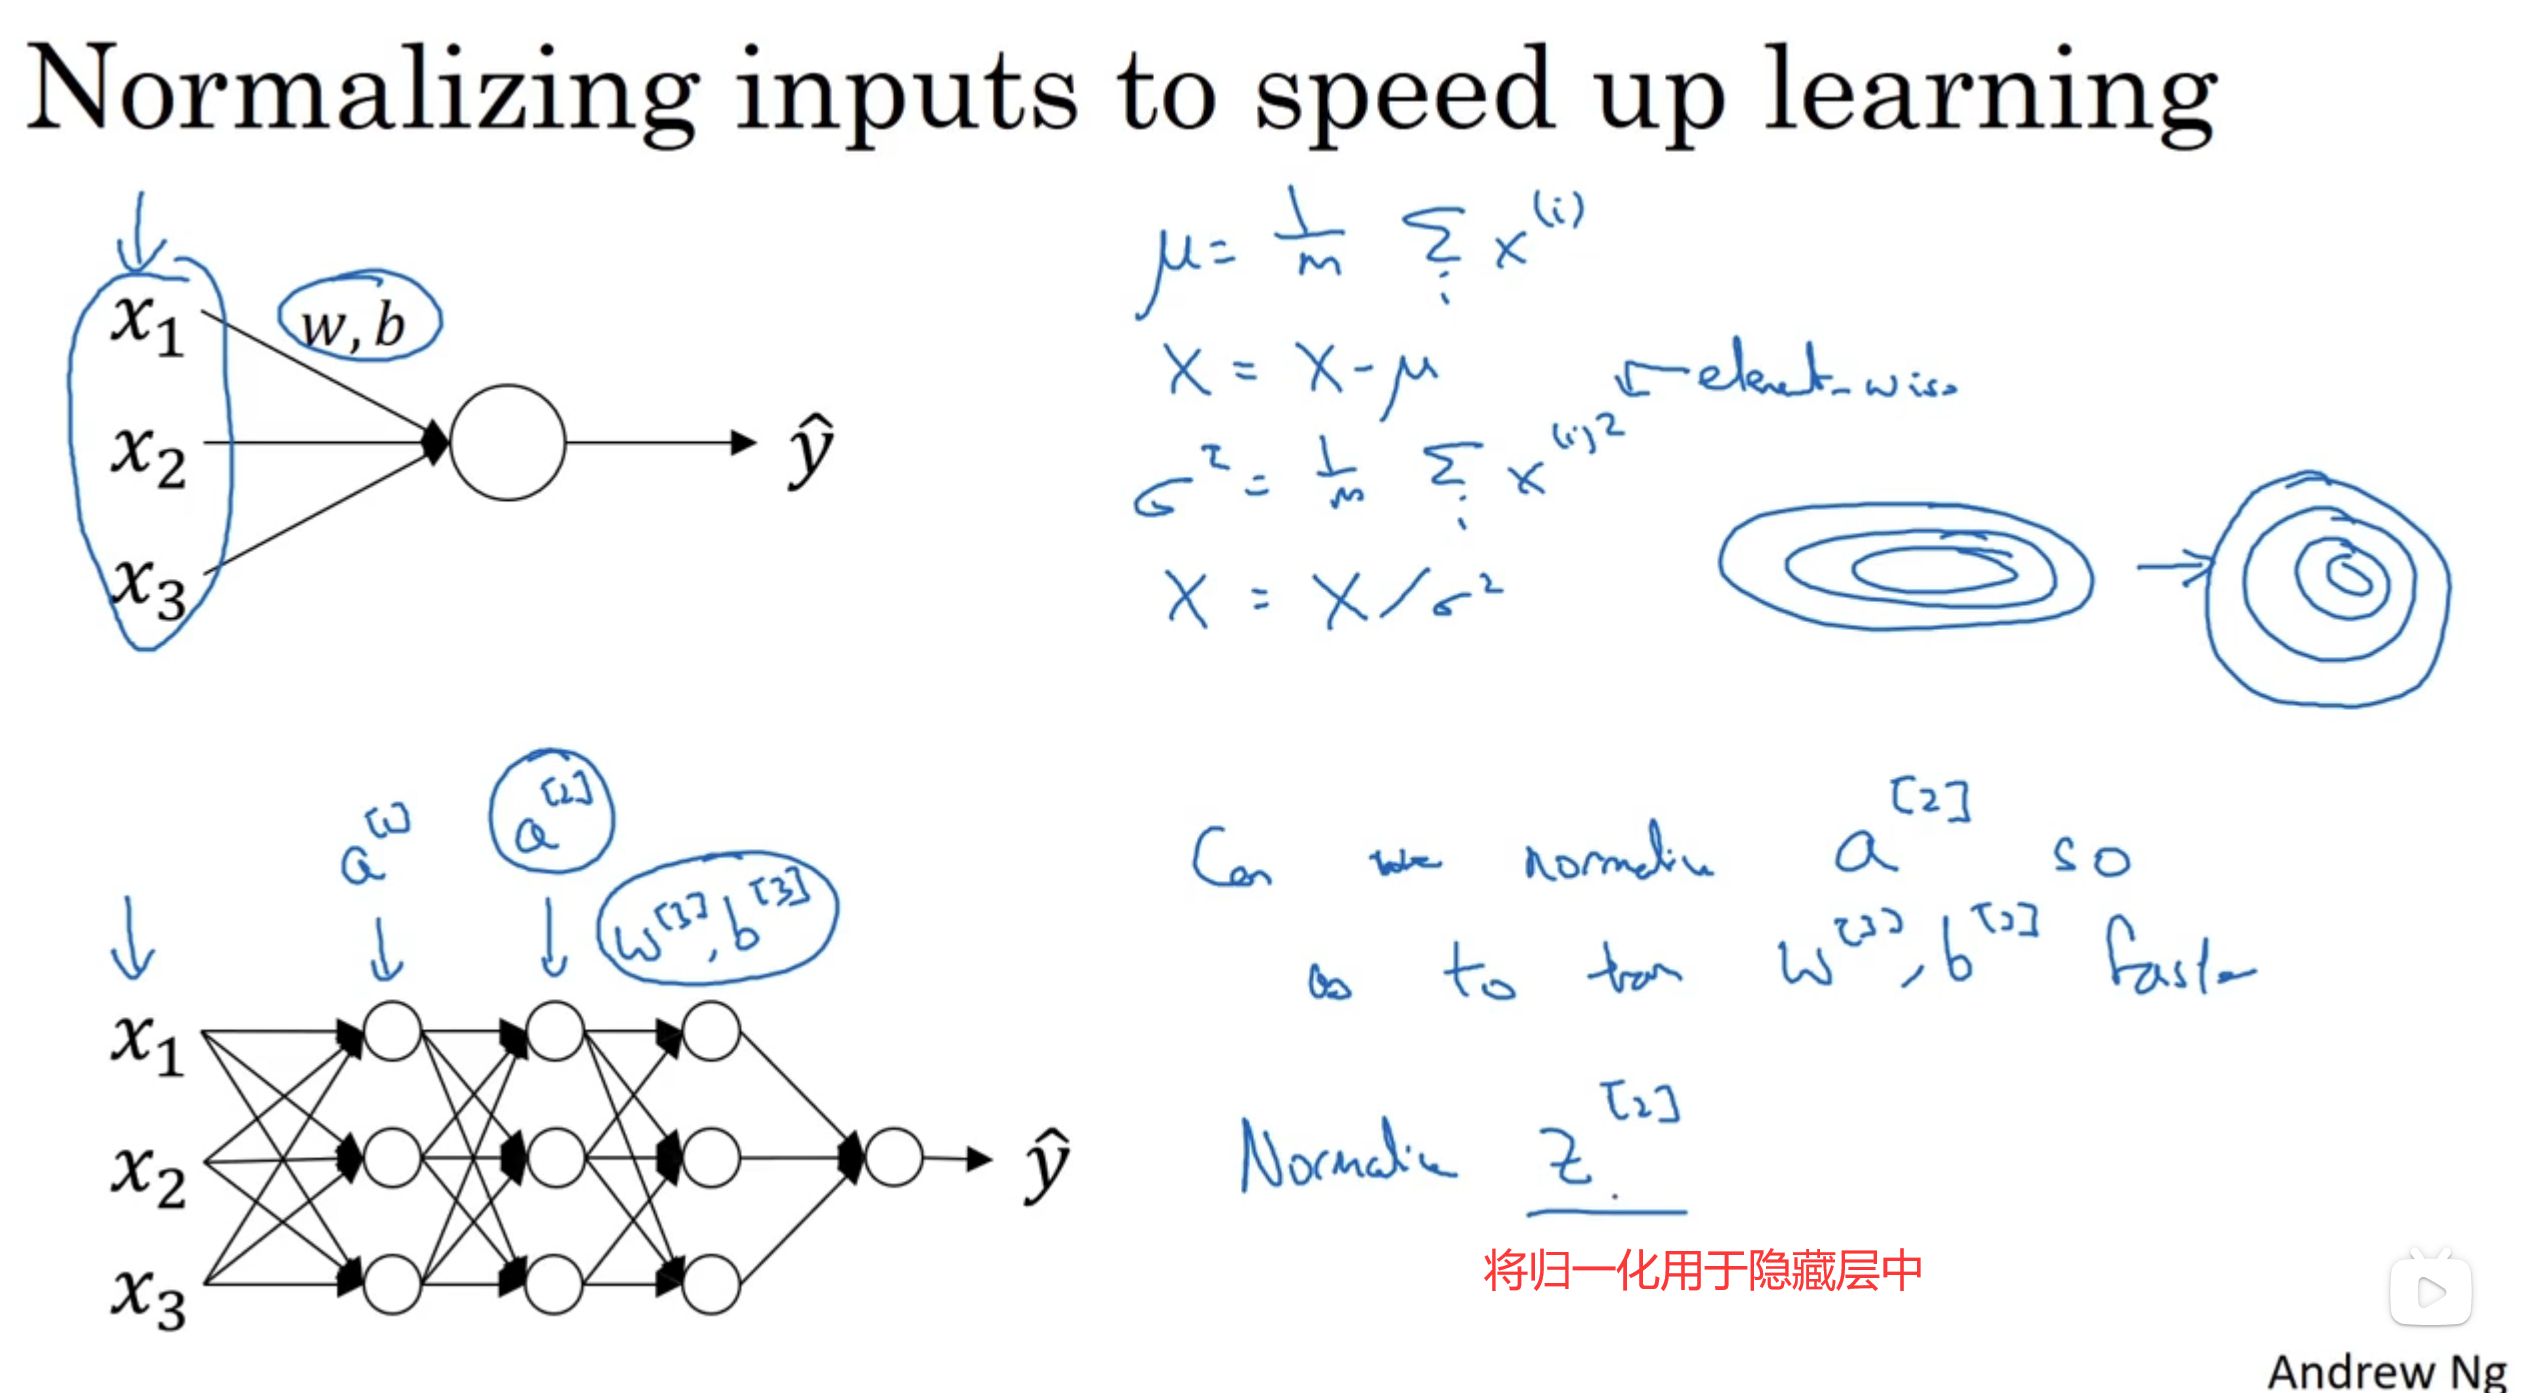 Normalizing inputs to speed up learning
x₁
w, b
x₂
x₃
ŷ
μ = 1/m Σᵢ x⁽ⁱ⁾
X = X - μ
element-wise
σ² = 1/m Σᵢ x⁽ⁱ⁾²
X = X/σ²
a[1]
a[2]
w[3], b[3]
x₁
x₂
x₃
ŷ
Can we normalize a[2] so
as to train w[3], b[3] faster
Normalize z[2]
将归一化用于隐藏层中
Andrew Ng